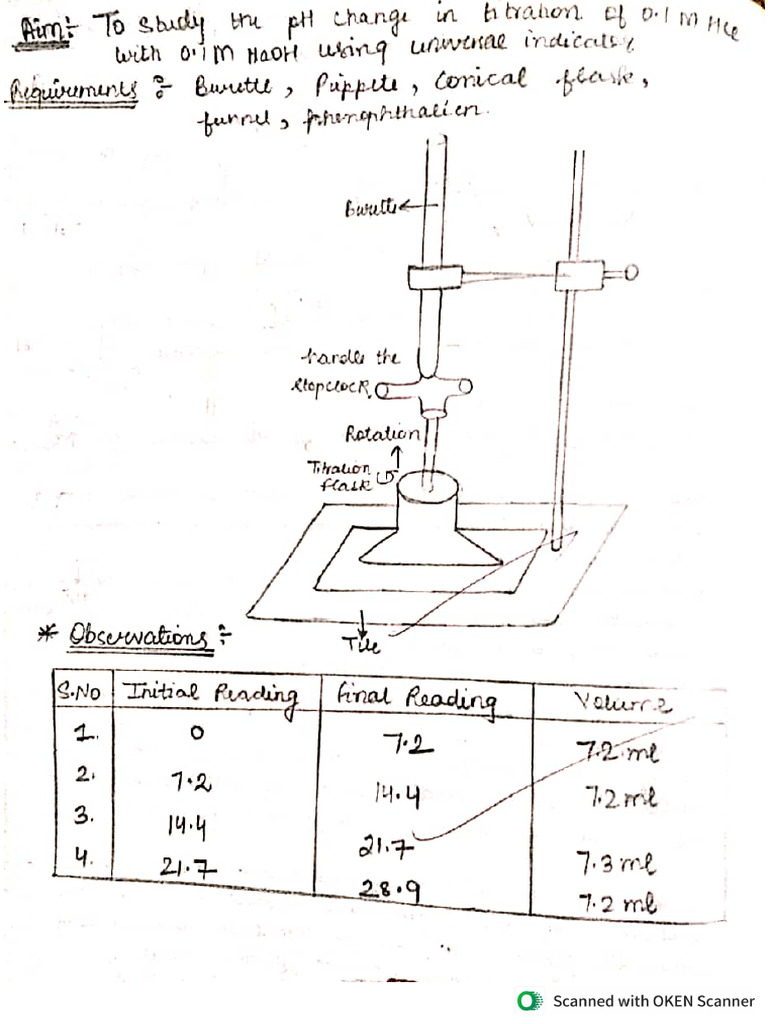 Aim:- To Study the pH change in titration of 0.1 M HCl
with 0.1M NaOH using universal indicator
Requirements :- Burette, Pippete, Conical flask,
funnel, phenophthalien.
Burette
handle the
Stopclock
Rotation
Titration
flask
Tile
* Observations :-
S.No Initial Reading Final Reading Volume
1. 0 7.2 7.2 ml
2. 7.2 14.4 7.2 ml
3. 14.4 21.7 7.3 ml
4. 21.7 28.9 7.2 ml
Scanned with OKEN Scanner